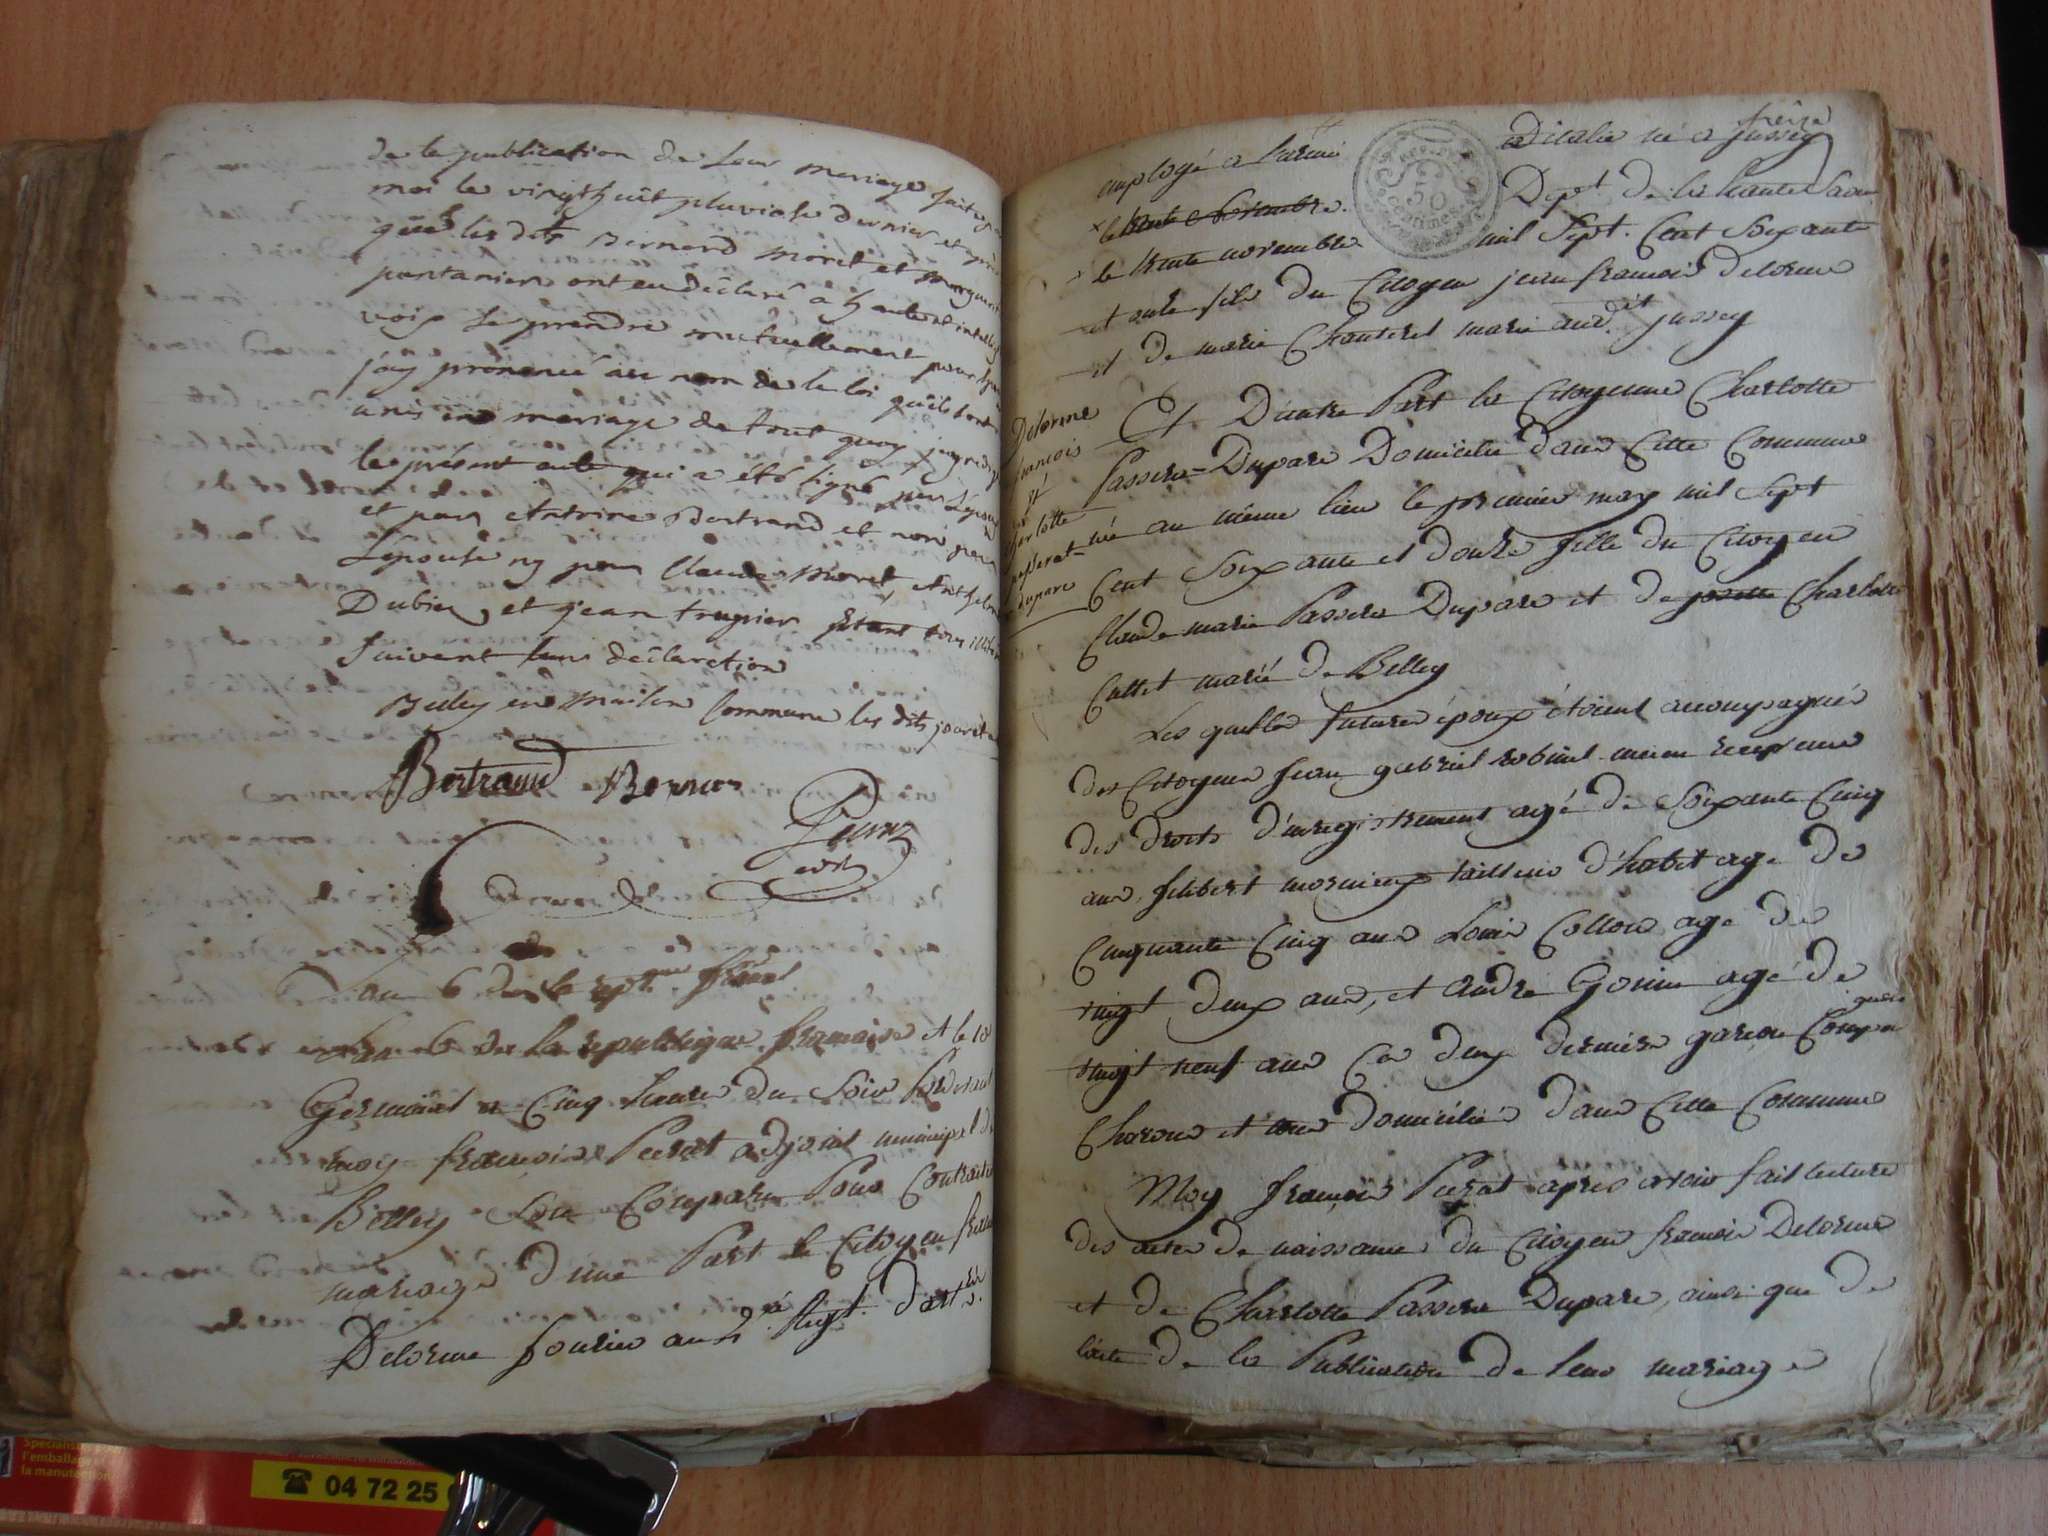 de la publication de leur mariage faite par
moi le vingt huit pluviose dernier et après
que les dits Bernard Moret et Marguerite
pantanier ont eu déclaré à haute et intelligi
voix se prendre mutuellement pour époux
j'ay prononcé au nom de la loi qu'ils sont
unis en mariage de tout quoy j'ay redigé
le présent acte qui a été signé par l'époux
et par Antoine Bertrand et non par
l'épouse ny par Claude Moret Anthelme
Dubieu et jean trupier étant tous illiteré
suivant leur déclaration
Belley en maison Commune les dits jour et an
Bertrand
an 6 de la rep.que
L'an 6 de la republique francaise et le 18
Germinal a Cinq heures du Soir Pardevant
moy francois Peirat adjoint municipal de
Belley Son Comparu Pour Contracter
mariage d'une Part le Citoyen francois
Delorme fourier au 2.e Regt. D'art.rie
employé a L'armée d'italie né a Jussey
le trente novembre. Dept. de la haute Saone
le trente novembre mil Sept. Cent Soixante
treize
et onze fils du Citoyen jean francois Delorme
et de marie Chanterel marié aud.et jussey
Delorme
francois
et
Charlotte
passerat
dupare
Et D'autre Part la Citoyenne Charlotte
Passera-Dupare Domicilie dans Cette Commune
née au même lieu le premier may mil Sept
Cent Soixante et douze fille du Citoyen
Claude marie Passera Dupare et de josette Charlotte
Cullet marié de Belley
Les quelles futures époux étoient accompagnés
des Citoyens jean gabriel robinel ancien receveur
des droits d'enregistrement agé de Soixante Cinq
ans, filibert mornieux tailleur d'habit age de
Cinquante Cinq ans Louis Collon age de
vingt deux ans, et André Gonin agé de
vingt neuf ans Ces deux derniers garcon Compa
gnons
Charons et tous domiciliés dans Cette Commune
Moy francois Peirat apres avoir fait lecture
des actes de naissance du Citoyen francois Delorme
et de Charlotte Passera Dupare, ainsi que de
l'acte de la Publication de leur mariage
Spécialiste
l'emballage
la manutention
☎ 04 72 25